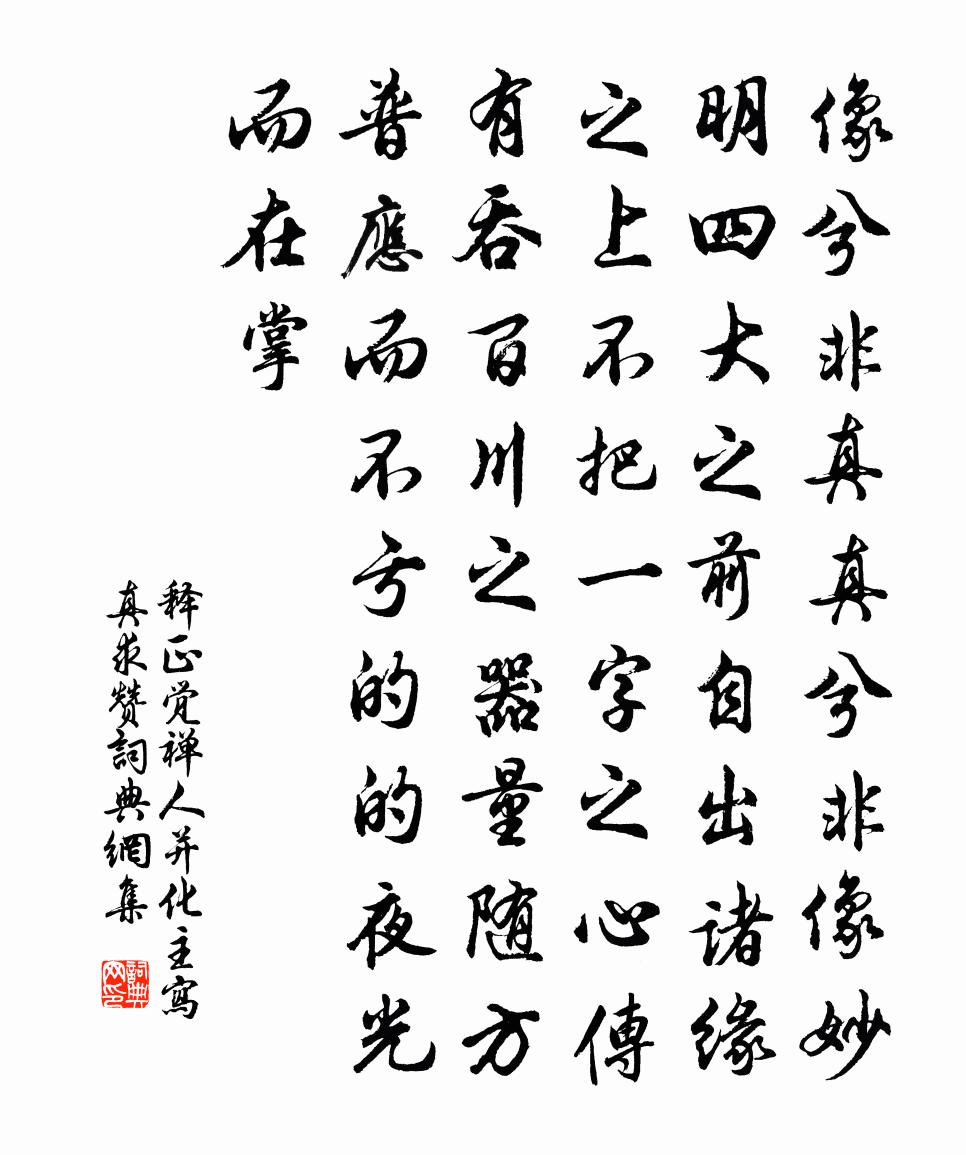 像兮非真真兮非像妙
明四大之前自出諸緣
之上不把一字之心傳
有吞百川之器量随方
普應而不亏的的夜光
而在掌
释正觉禅人并化主寫
真求赞詞典網集
詞典网印